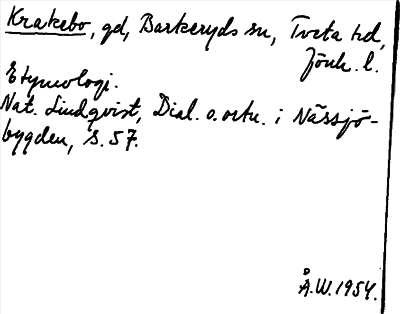 Krakebo, gd, Barkeryds sn, Tveta hd,
Jönk. l.
Etymologi.
Nat. Lindqvist, Dial. o. ortn. i Nässjö-
bygden, s. 57.
Å.W. 1954.